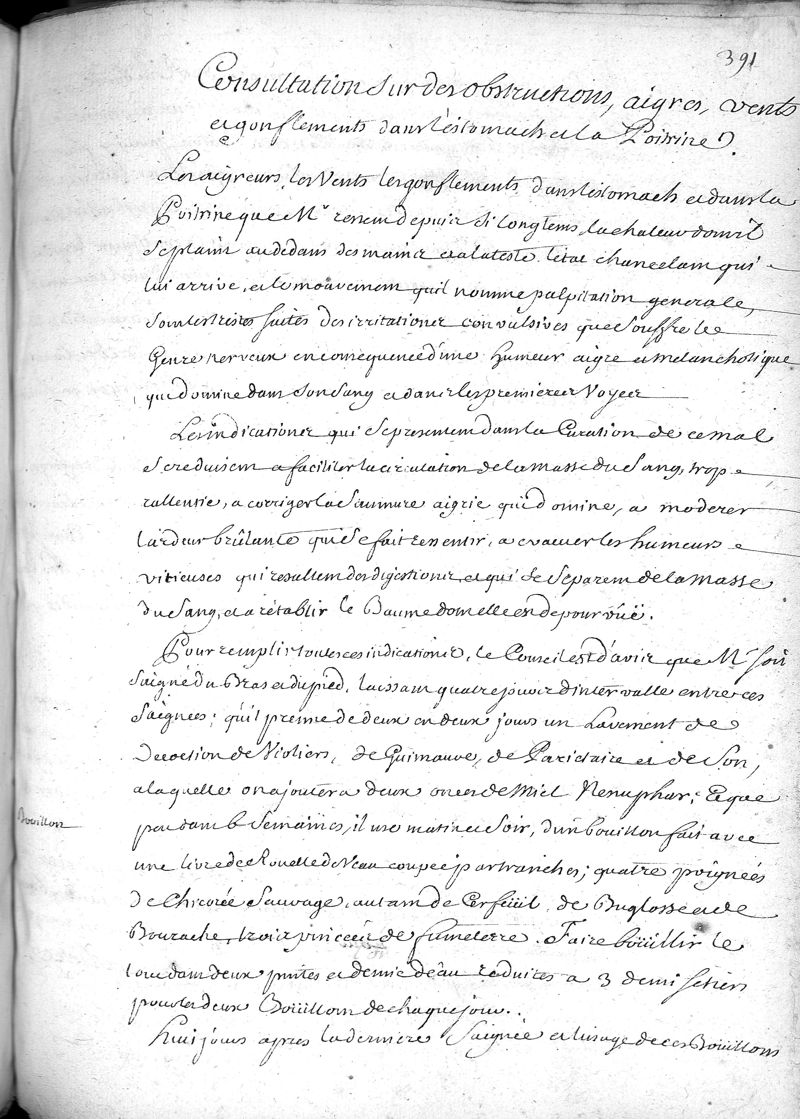 391
Consultation sur des obstructions, aigres, vents
et gonflements dans l'estomach et la Poitrine.
Les aigreurs, les Vents les gonflements dans l'estomach et dans la
Poitrine que Mr ressent depuis si longtems, la chaleur dont il
se plaint au dedans des mains et a la teste l'etat chancelant qui
lui arrive, et le mouvement qu'il nomme palpitation generale,
sont les tristes suites des irritations convulsives que souffre le
Genre nerveux en consequence d'une humeur aigre et melancholique
qui domine dans son sang et dans les premieres Voyes
Les indications qui se presentent dans la Curation de ce mal
se reduisent a faciliter la circulation de la masse du sang, trop
rallentie, a corriger la Saumure aigrie qui domine, a moderer
l'ardeur brûlante qui se fait ressentir, a evacuer les humeurs
vitieuses qui resultent des digestions et qui se separent de la masse
du sang, et a rétablir le Baume dont elle est depourvüe.
Pour remplir toutes ces indications, le Conseil est d'avis que Mr soit
saigné du Bras et du pied, laissant quatre jours d'intervalle entre ces
saignées; qu'il prenne de deux en deux jours un Lavement de
Decoction de Violiers, de Guimauve, de Parietaire et de Son,
a laquelle on ajoutera deux onces de Miel Nenuphar; Et que
pendant 6 semaines, il use matin et soir, d'un bouillon fait avec
Bouillon
une livre de Roüelle de Veau coupée par tranches; quatre poignées
de Chicorée Sauvage, autant de Cerfeüil, de Buglosse et de
Bourache, trois pincées de fumeterre. Faire boüillir le
tout dans deux pintes et demie d'eau reduites a 3 demi setiers
pour les deux Boüillons de chaque jour.
Huit jours apres la derniere Saignée et l'usage de ces Boüillons